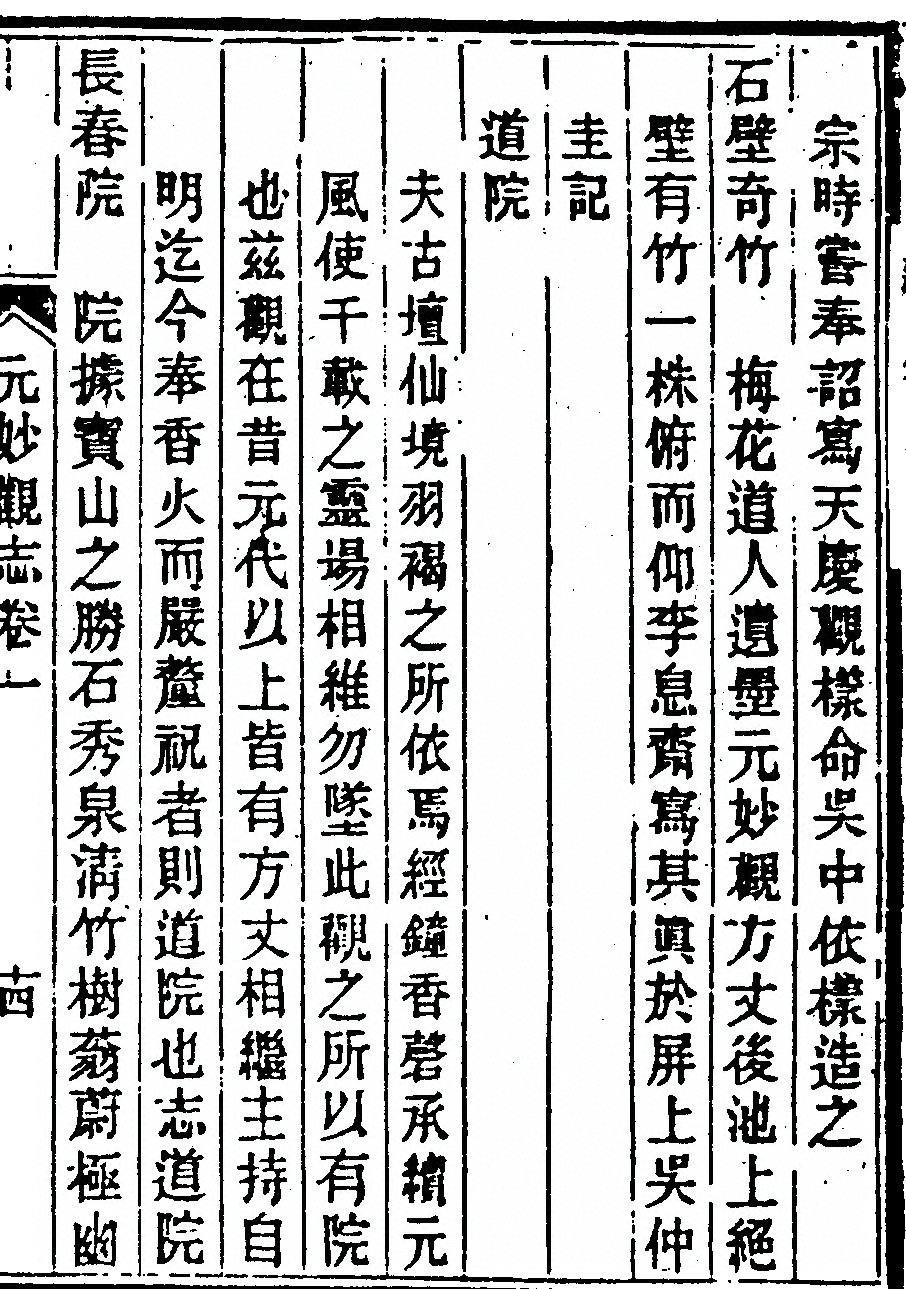 宗時嘗奉詔寫天慶觀樣命吳中依樣造之
石壁奇竹 梅花道人遺墨元妙觀方丈後池上絕
壁有竹一株俯而仰李息齋寫其眞於屏上吳仲
圭記
道院
夫古壇仙境羽褐之所依焉經鐘香磬承續元
風使千載之靈場相維勿墜此觀之所以有院
也茲觀在昔元代以上皆有方丈相繼主持自
明迄今奉香火而嚴釐祝者則道院也志道院
長春院 院據寶山之勝石秀泉清竹樹蓊蔚極幽
元妙觀志卷一 十四